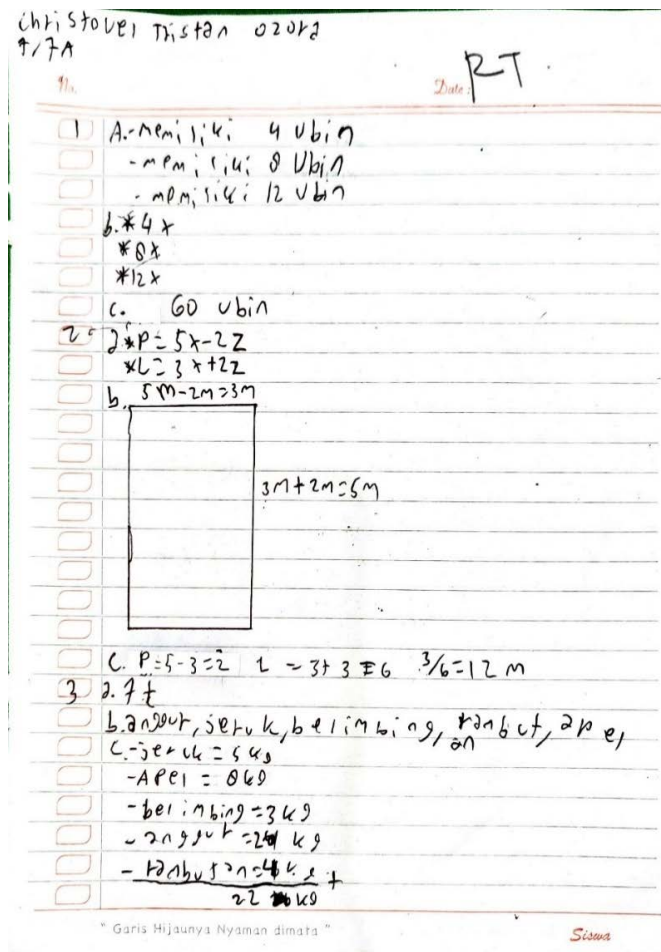 Christover Tristan ozora
7/7A
No.
Date: RT
1 A.-memiliki 4 Ubin
-memiliki 8 Ubin
-memiliki 12 Ubin
b.*4x
*8x
*12x
c. 60 Ubin
2. a*P=5x-2z
*L=3x+2z
b. 5m-2m=3m
3m+2m=5m
C. P=5-3=2 L = 3+3=6 3/6=12 m
3 a.7
b.anggur, jeruk, belimbing, rambutan, apel
C.-jeruk = 5kg
-Apel = 8kg
-belimbing=3kg
-anggur=2 kg
-rambutan=4k +
22 kg
" Garis Hijaunya Nyaman dimata "
Siswa